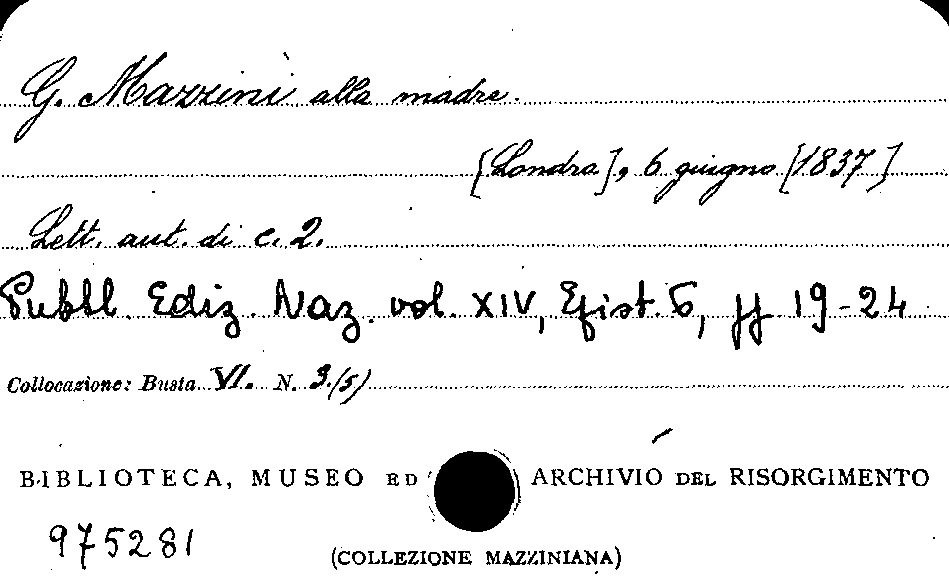 G. Mazzini alla madre.
[Londra], 6 giugno [1837]
Lett. aut. di c. 2.
Pubbl. Ediz. Naz. vol. XIV, Epist. 6, pp 19-24
Collocazione: Busta VI. N. 3./(5)
BIBLIOTECA, MUSEO ED ARCHIVIO DEL RISORGIMENTO
975281
(COLLEZIONE MAZZINIANA)